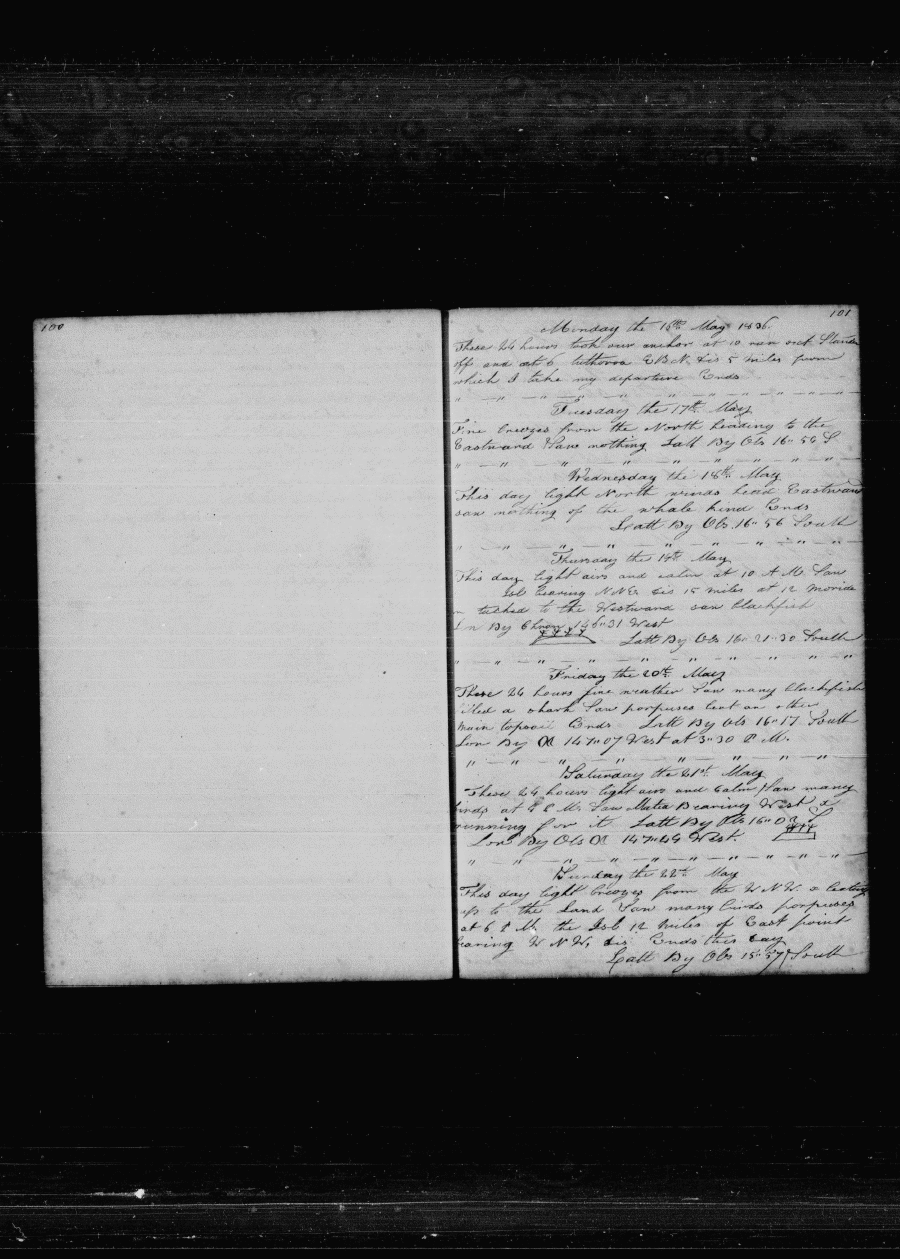 100
101
Munday the 16th May 1836
These 24 hours took our anchor at 10 ran out Stands
off and at 6 E B N dis 5 miles from
which I take my departure Ends
Tuesday the 17th May
Fine breezes from the North heading to the
Eastward Saw nothing Latt By Obs 16" 56 S
Wednesday the 18th May
This day light North winds head Eastward
saw nothing of the whale kind Ends
Latt By Obs 16" 56 South
Thursday the 19th May
This day light airs and calm at 10 A M Saw
Isl bearing N N E dis 15 miles at 12
tacked to the Westward saw blackfish
Lon By Chron 146"31 West
Latt By Obs 16" 21"30 South
Friday the 20th May
These 24 hours fine weather Saw many blackfish
a shark Saw porpuses bent an other
main topsail Ends Latt By Obs 16"17 South
Lon By 147"07 West at 3"30 P M.
Saturday the 21st May
These 24 hours light airs and Calm Saw many
birds at P M. Saw Matia Bearing West &
running for it Latt By Obs 16"02 S
Lon By Obs 147"49 West.
Sunday the 22nd May
This day light breezes from the W N W a beating
up to the Land Saw many birds porpuses
at 6 P M. the Isl 12 miles of East point
bearing W N W, dis Ends this day
Latt By Obs 15"57 South